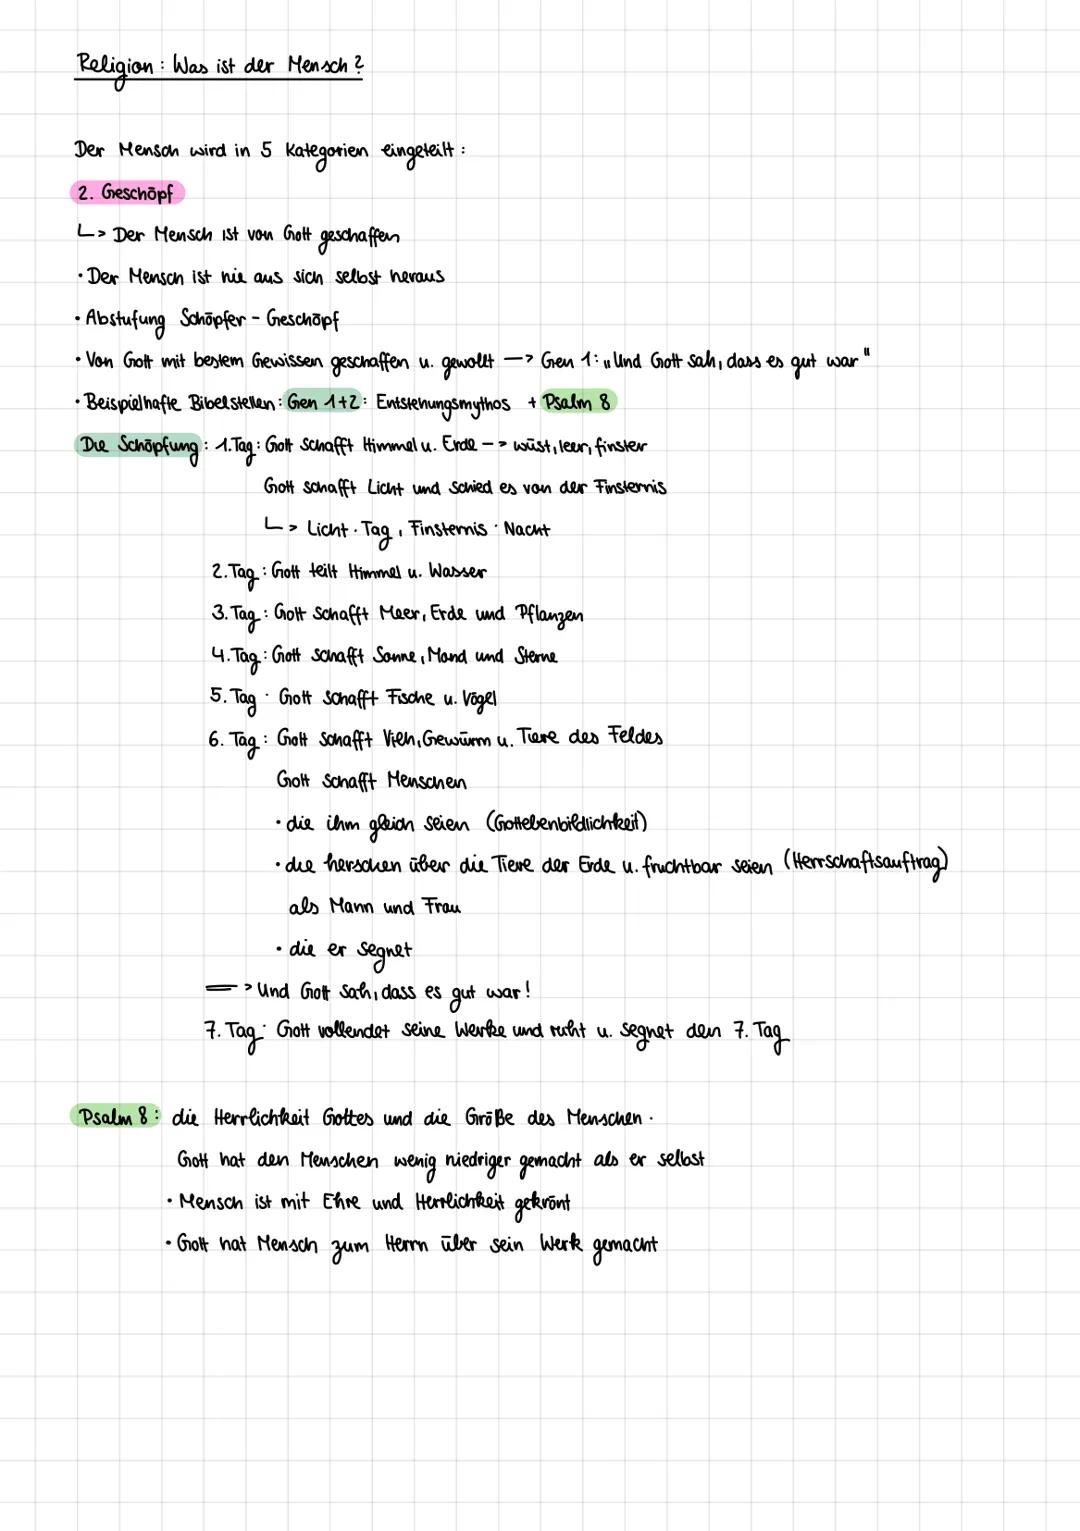 Religion: Was ist der Mensch?
Der Mensch wird in 5 Kategorien eingeteilt:
2. Geschöpf
↳ Der Mensch ist von Gott geschaffen
· Der Mensch ist nie aus sich selbst heraus
· Abstufung Schöpfer - Geschöpf
· Von Gott mit bestem Gewissen geschaffen u. gewollt —> Gen 1: „Und Gott sah, dass es gut war"
· Beispielhafte Bibelstellen: Gen 1+2: Entstehungsmythos + Psalm 8
Die Schöpfung: 1.Tag: Gott schafft Himmel u. Erde —> wüst, leer, finster
Gott schafft Licht und schied es von der Finsternis
↳ Licht · Tag, Finsternis · Nacht
2.Tag: Gott teilt Himmel u. Wasser
3.Tag: Gott schafft Meer, Erde und Pflanzen
4.Tag: Gott schafft Sonne, Mond und Sterne
5. Tag · Gott schafft Fische u. Vögel
6. Tag: Gott schafft Vieh, Gewürm u. Tiere des Feldes
Gott schafft Menschen
· die ihm gleich seien (Gottebenbildlichkeit)
· die herschen über die Tiere der Erde u. fruchtbar seien (Herrschaftsauftrag)
als Mann und Frau
· die er segnet
=> Und Gott sah, dass es gut war!
7. Tag · Gott vollendet seine Werke und ruht u. segnet den 7. Tag
Psalm 8: die Herrlichkeit Gottes und die Größe des Menschen ·
Gott hat den Menschen wenig niedriger gemacht als er selbst
· Mensch ist mit Ehre und Herrlichkeit gekrönt
· Gott hat Mensch zum Herrn über sein Werk gemacht